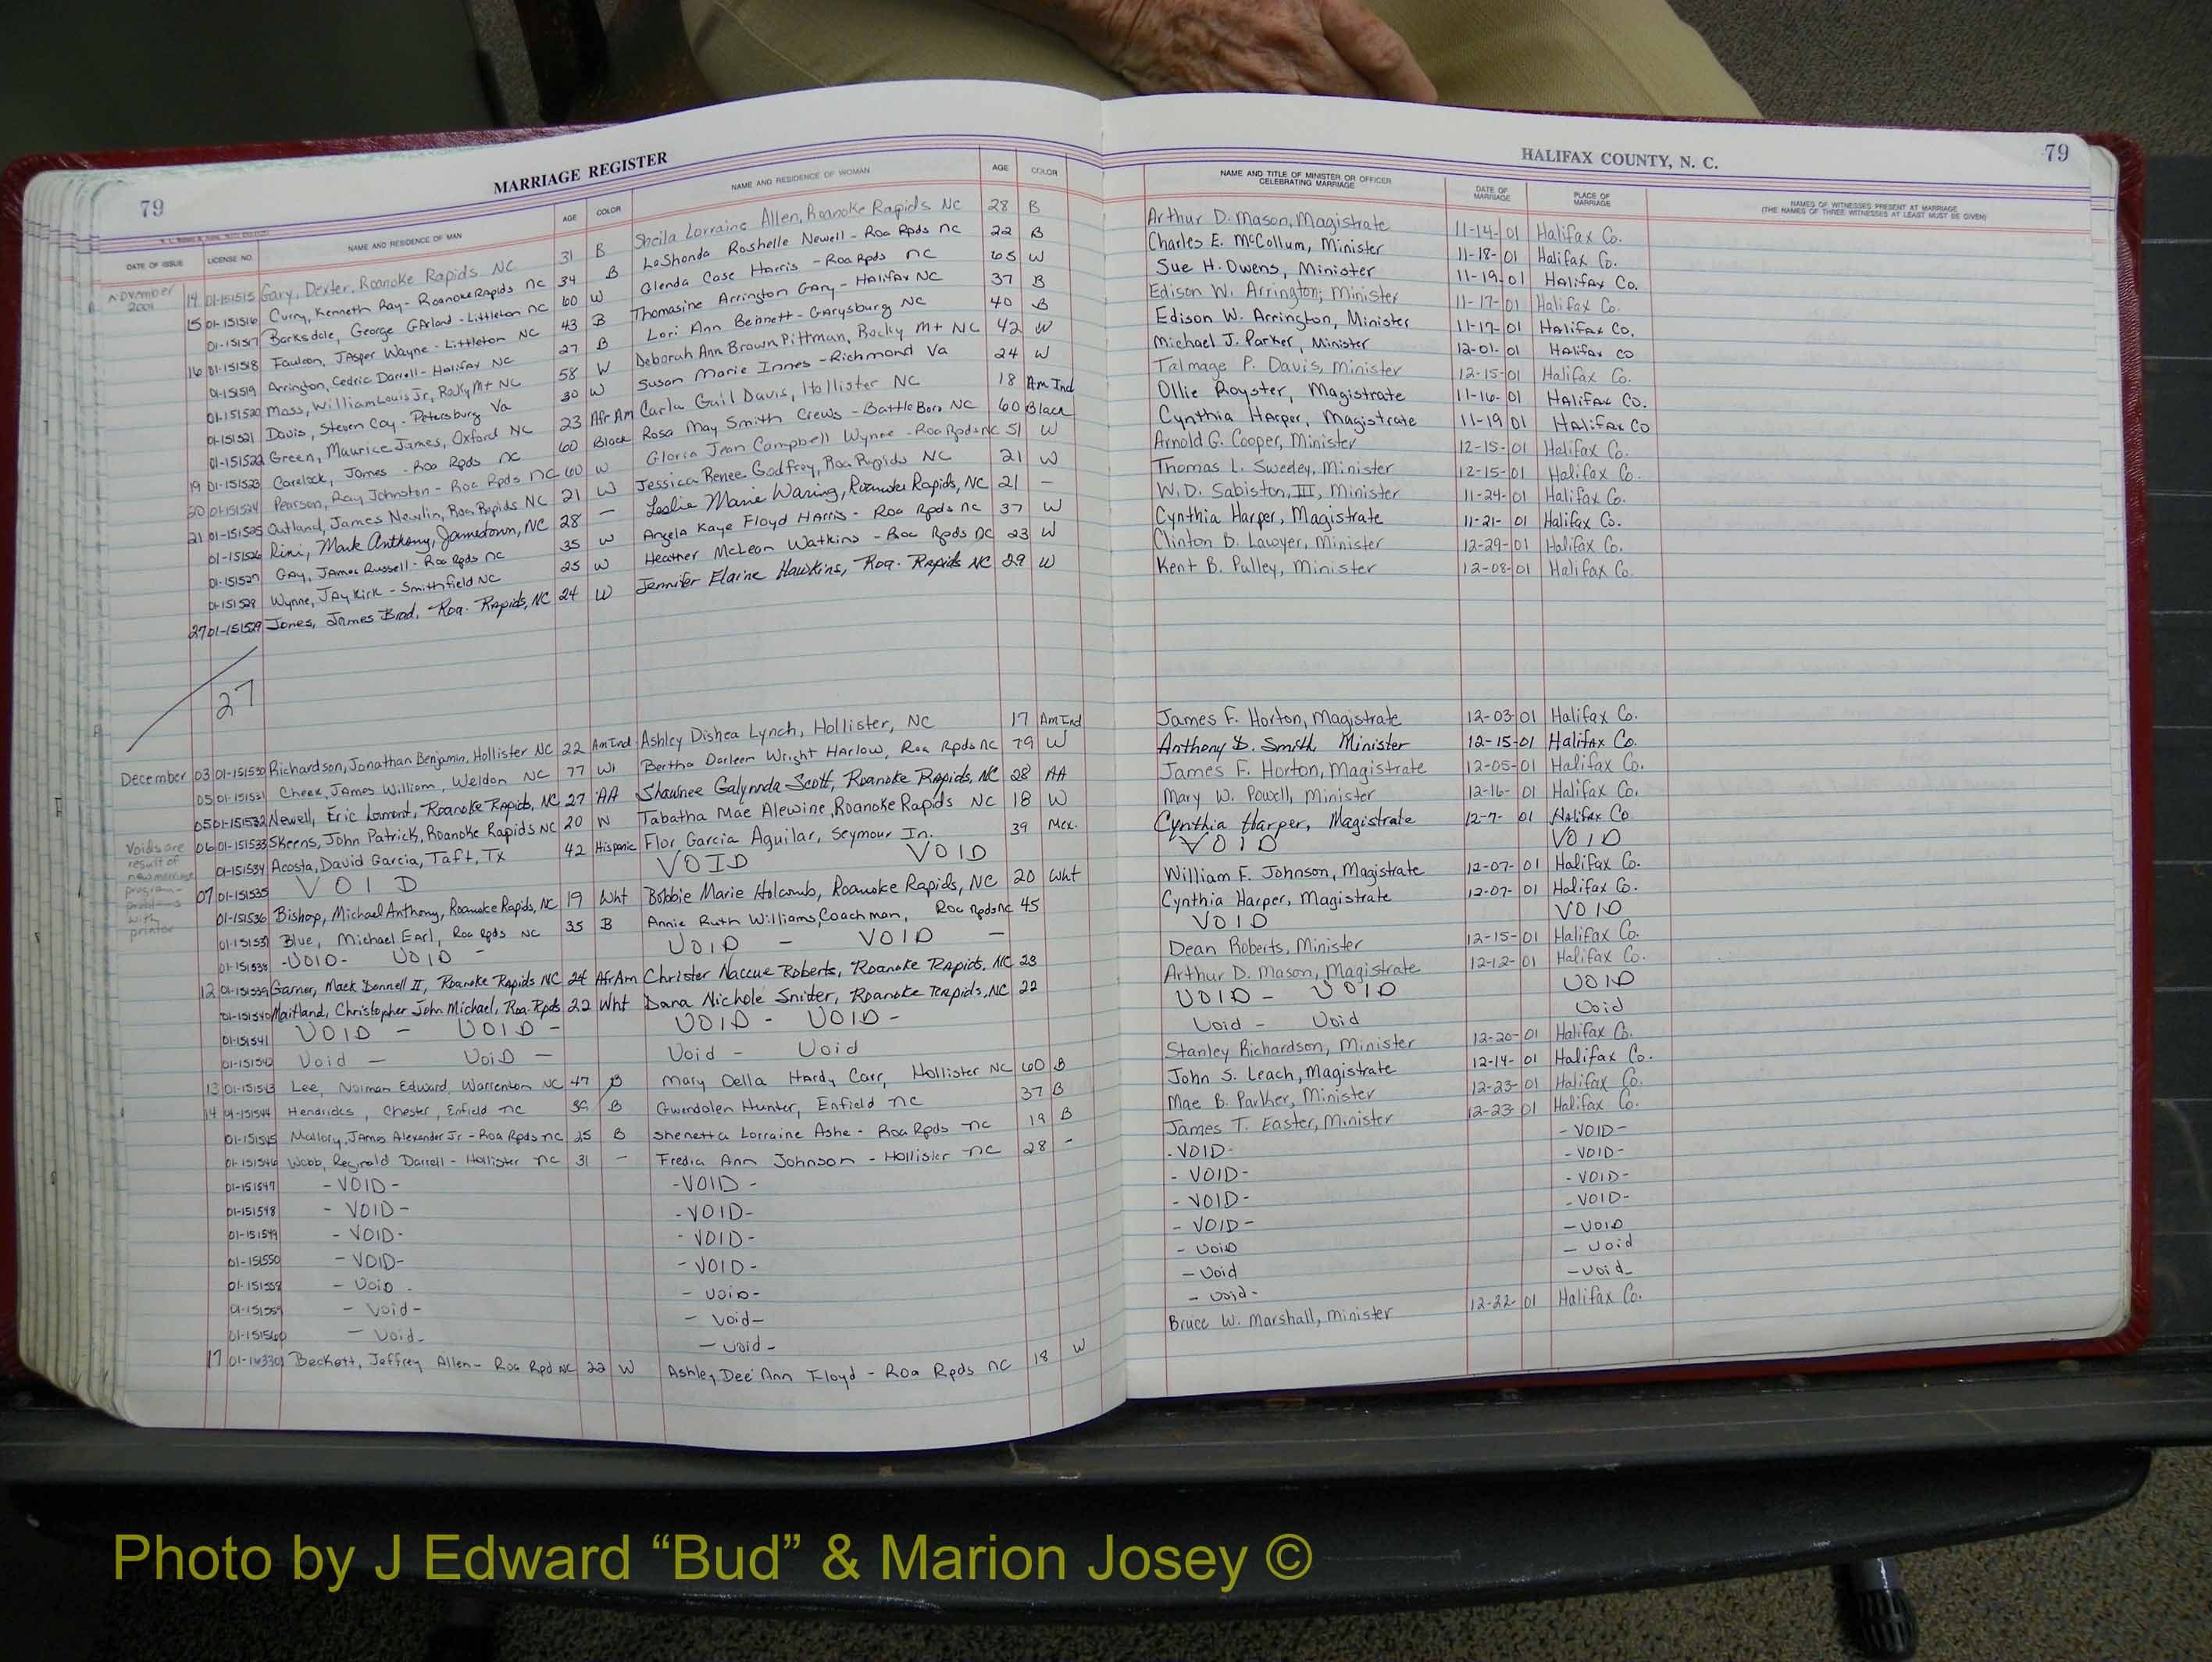 MARRIAGE REGISTER
HALIFAX COUNTY, N. C.
79
79
DATE OF ISSUE LICENSE NO. NAME AND RESIDENCE OF MAN AGE COLOR NAME AND RESIDENCE OF WOMAN AGE COLOR NAME AND TITLE OF MINISTER OR OFFICER CELEBRATING MARRIAGE DATE OF MARRIAGE PLACE OF MARRIAGE NAMES OF WITNESSES PRESENT AT MARRIAGE (THE NAMES OF THREE WITNESSES AT LEAST MUST BE GIVEN)
November 2001 14 01-151515 Gary, Dexter, Roanoke Rapids NC 31 B Sheila Lorraine Allen, Roanoke Rapids NC 28 B Arthur D. Mason, Magistrate 11-14-01 Halifax Co.
15 01-151516 Curry, Kenneth Ray - Roanoke Rapids NC 34 B LaShonda Roshelle Newell - Roa Rpds NC 22 B Charles E. McCollum, Minister 11-18-01 Halifax Co.
01-151517 Barksdale, George Garland - Littleton NC 60 W Glenda Case Harris - Roa Rpds NC 65 W Sue H. Owens, Minister 11-19-01 Halifax Co.
16 01-151518 Faulcon, Jasper Wayne - Littleton NC 43 B Thomasine Arrington Gary - Halifax NC 37 B Edison W. Arrington, Minister 11-17-01 Halifax Co.
01-151519 Arrington, Cedric Darrell - Halifax NC 27 B Lori Ann Bennett - Garysburg NC 40 B Edison W. Arrington, Minister 11-17-01 Halifax Co.
01-151520 Moss, William Louis Jr, Rocky Mt NC 58 W Deborah Ann Brown Pittman, Rocky Mt NC 42 W Michael J. Parker, Minister 12-01-01 Halifax Co
01-151521 Davis, Steven Coy - Petersburg Va 30 W Susan Marie Innes - Richmond Va 24 W Talmage P. Davis, Minister 12-15-01 Halifax Co.
01-151522 Green, Maurice James, Oxford NC 23 Afr Am Carla Gail Davis, Hollister NC 18 Am Ind Ollie Royster, Magistrate 11-16-01 Halifax Co.
19 01-151523 Carelock, James - Roa Rpds NC 60 Black Rosa May Smith Crews - Battleboro NC 60 Black Cynthia Harper, Magistrate 11-19 01 Halifax Co
20 01-151524 Pearson, Ray Johnston - Roa Rpds NC 60 W Gloria Jean Campbell Wynne - Roa Rpds NC 51 W Arnold G. Cooper, Minister 12-15-01 Halifax Co.
21 01-151525 Outland, James Newlin, Roa Rapids NC 21 W Jessica Renee Godfrey, Roa Rapids NC 21 W Thomas L. Sweeley, Minister 12-15-01 Halifax Co.
01-151526 Rini, Mark Anthony, Jamestown, NC 28 - Leslie Marie Waring, Roanoke Rapids, NC 21 - W.D. Sabiston, III, Minister 11-24-01 Halifax Co.
01-151527 Gay, James Russell - Roa Rpds NC 35 W Angela Kaye Floyd Harris - Roa Rpds NC 37 W Cynthia Harper, Magistrate 11-21-01 Halifax Co.
01-151528 Wynne, Jay Kirk - Smithfield NC 25 W Heather McLean Watkins - Roa Rpds NC 23 W Clinton D. Lawyer, Minister 12-29-01 Halifax Co.
27 01-151529 Jones, James Brad, Roa. Rapids, NC 24 W Jennifer Elaine Hawkins, Roa. Rapids NC 29 W Kent B. Pulley, Minister 12-08-01 Halifax Co.
27
December 03 01-151530 Richardson, Jonathan Benjamin, Hollister NC 22 Am Ind Ashley Dishea Lynch, Hollister, NC 17 Am Ind James F. Horton, Magistrate 12-03-01 Halifax Co.
05 01-151531 Cheek, James William, Weldon NC 77 W Bertha Darleen Wright Harlow, Roa Rpds NC 79 W Anthony D. Smith Minister 12-15-01 Halifax Co.
05 01-151532 Newell, Eric Lamont, Roanoke Rapids, NC 27 AA Shawnee Galynnda Scott, Roanoke Rapids, NC 28 AA James F. Horton, Magistrate 12-05-01 Halifax Co.
06 01-151533 Skeens, John Patrick, Roanoke Rapids NC 20 W Tabatha Mae Alewine, Roanoke Rapids NC 18 W Mary W. Powell, Minister 12-16-01 Halifax Co.
01-151534 Acosta, David Garcia, Taft, Tx 42 Hispanic Flor Garcia Aguilar, Seymour In. 39 Mex. Cynthia Harper, Magistrate 12-7-01 Halifax Co
Voids are result of new marriage program - problems with printer
07 01-151535 VOID VOID VOID VOID VOID
01-151536 Bishop, Michael Anthony, Roanoke Rapids, NC 19 Wht Bobbie Marie Holcomb, Roanoke Rapids, NC 20 Wht William F. Johnson, Magistrate 12-07-01 Halifax Co.
01-151537 Blue, Michael Earl, Roa Rpds NC 35 B Annie Ruth Williams Coachman, Roa Rpds NC 45 Cynthia Harper, Magistrate 12-07-01 Halifax Co.
01-151538 -VOID- VOID - VOID - VOID - VOID VOID
12 01-151539 Garner, Mack Donnell II, Roanoke Rapids NC 24 Afr Am Christer Naccue Roberts, Roanoke Rapids, NC 23 Dean Roberts, Minister 12-15-01 Halifax Co.
01-151540 Maitland, Christopher John Michael, Roa. Rpds 22 Wht Dana Nichole Snider, Roanoke Rapids, NC 22 Arthur D. Mason, Magistrate 12-12-01 Halifax Co.
01-151541 VOID - VOID - VOID - VOID - VOID - VOID VOID
01-151542 Void - Void - Void - Void Void - Void Void
13 01-151543 Lee, Norman Edward, Warrenton NC 47 B Mary Della Hardy Carr, Hollister NC 60 B Stanley Richardson, Minister 12-20-01 Halifax Co.
14 01-151544 Hendricks, Chester, Enfield NC 39 B Gwendolen Hunter, Enfield NC 37 B John S. Leach, Magistrate 12-14-01 Halifax Co.
01-151545 Mallory, James Alexander Jr - Roa Rpds NC 25 B Shenetta Lorraine Ashe - Roa Rpds NC 19 B Mae B. Parker, Minister 12-23-01 Halifax Co.
01-151546 Webb, Reginald Darrell - Hollister NC 31 - Fredia Ann Johnson - Hollister NC 28 - James T. Easter, Minister 12-23-01 Halifax Co.
01-151547 -VOID- -VOID- -VOID- -VOID-
01-151548 -VOID- -VOID- -VOID- -VOID-
01-151549 -VOID- -VOID- -VOID- -VOID-
01-151550 -VOID- -VOID- -VOID- -VOID-
-Void- -Void- -Void -Void
-Void- -Void- -Void -Void
01-151560 -Void- -Void- -Void- -Void-
17 Beckett, Jeffrey Allen - Roa Rpd NC 22 W Ashley Dee'Ann Floyd - Roa Rpds NC 18 W Bruce W. Marshall, Minister 12-22-01 Halifax Co.
Photo by J Edward “Bud” & Marion Josey ©